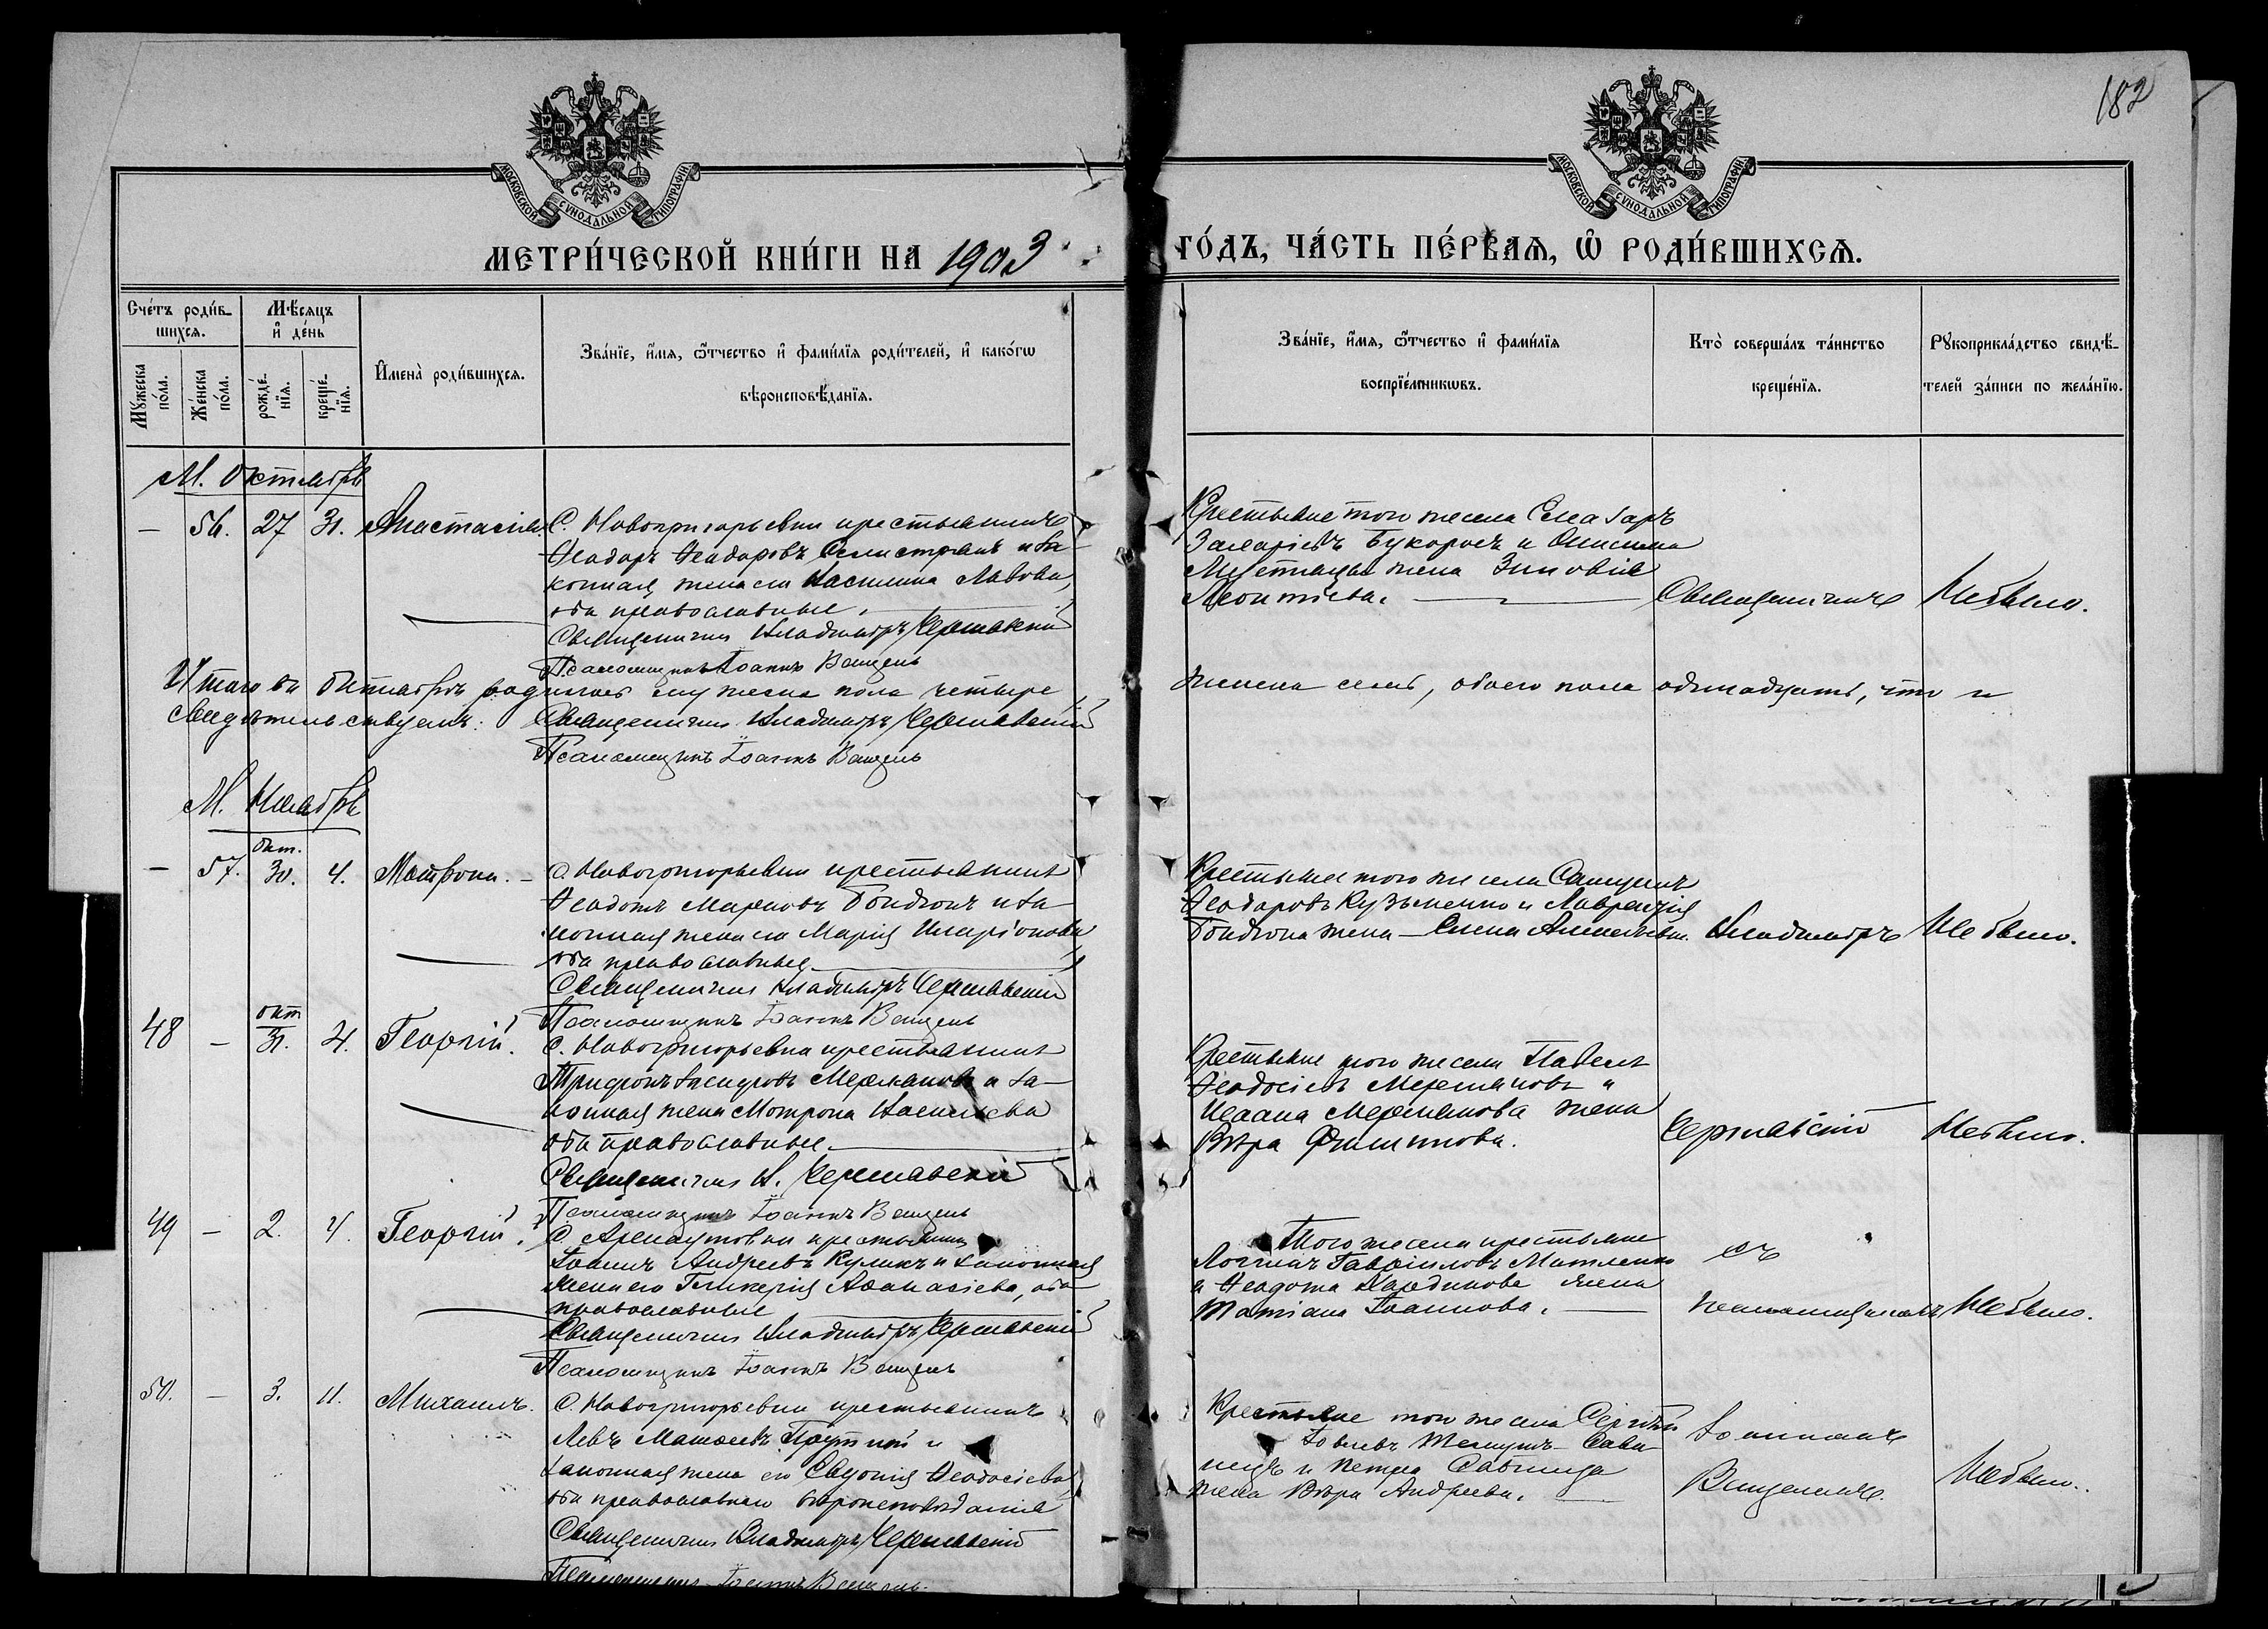 182
МОСКОВСКОЙ СѴНОДАЛЬНОЙ ТИПОГРАФІИ
МОСКОВСКОЙ СѴНОДАЛЬНОЙ ТИПОГРАФІИ
МЕТРИ́ЧЕСКОЙ КНИ́ГИ НА 1903 ГО́ДЪ, ЧА́СТЬ ПЕ́РВАѦ, Ѡ҆ РОДИ́ВШИХСѦ.
Сче́тъ роди́в-
шихсѧ.
Мꙋ́жеска по́ла.
Же́нска по́ла.
Мѣ́сѧцъ
и҆ де́нь
рожде́-
нїѧ.
креще́-
нїѧ.
И҆мена̀ роди́вшихсѧ.
Зва́нїе, и҆́мѧ, ѻ҆́тчество и҆ фами́лїѧ роди́телей, и҆ како́гѡ
вѣроисповѣ́данїѧ.
Зва́нїе, и҆́мѧ, ѻ҆́тчество и҆ фами́лїѧ
воспрїе́мникѡвъ.
Кто̀ соверша́лъ та́инство
креще́нїѧ.
Рꙋкоприкла́дство свидѣ́-
телей за́писи по жела́нїю.
М. Октябрь
– 56. 27 31. Анастасія
С. Новогригорьевки крестьянинъ
Ѳеодоръ Ѳеодоровъ и за-
конная жена его Василиса Львова,
оба православные.
Священникъ Владиміръ Чернявскій
Псаломщикъ Іоаннъ Ващень
Крестьяне того же села Елеазаръ
Захаріевъ и Онисима
жена Зиновія
Леонтіева.
Священникъ
Не было.
Итого въ Октябрѣ родилось мужеска пола четыре
женска семь, обоего пола одинадцать, что и
свидѣтельствуемъ: Священникъ Владиміръ Чернявскій
Псаломщикъ Іоаннъ Ващень
М. Ноябрь
– 57. Окт. 30. 4. Матрона.
С. Новогригорьевки крестьянинъ
Ѳеодотъ Марковъ и за-
конная жена его Марія Иларіонова
оба православные
Священникъ Владиміръ Чернявскій
Псаломщикъ Іоаннъ Ващень
Крестьяне того же села Самуилъ
Ѳеодоровъ Кузьменко и Лаврентія
жена Елена Алексѣева.
Владиміръ
Не было.
48 – окт 31. 4. Георгій.
С. Новогригорьевки крестьянинъ
Трифонъ и за-
конная жена Мотрона Васильева
оба православные.
Священникъ В. Чернявскій
Псаломщикъ Іоаннъ Ващень
Крестьяне того же села Павелъ
Ѳеодосіевъ и
жена
Вѣра Филиппова.
Чернявскій
Не было.
49 – 2. 4. Георгій.
С. Арнаутовки крестьянинъ
Іоаннъ Андреевъ Куликъ и законная
жена его Гликерія Аѳанасіева, оба
православные
Священникъ Владиміръ Чернявскій
Псаломщикъ Іоаннъ Ващень
Того же села крестьяне
Логгинъ Гавріиловъ
и Ѳеодота жена
Татіана Іоаннова.
съ
псаломщикомъ
Не было.
50. – 3. 11. Михаилъ.
С. Новогригорьевки крестьянинъ
Левъ Матѳеевъ и
законная жена его Евдокія Ѳеодосіева
оба православнаго вѣроисповѣданія
Священникъ Владиміръ Чернявскій
Псаломщикъ Іоаннъ Ващень.
Крестьяне того же села Сергѣй
Іовлевъ Сави-
ницъ и Петра Савиница
жена Вѣра Андреева.
Іоанномъ
Ващенемъ.
Не было.